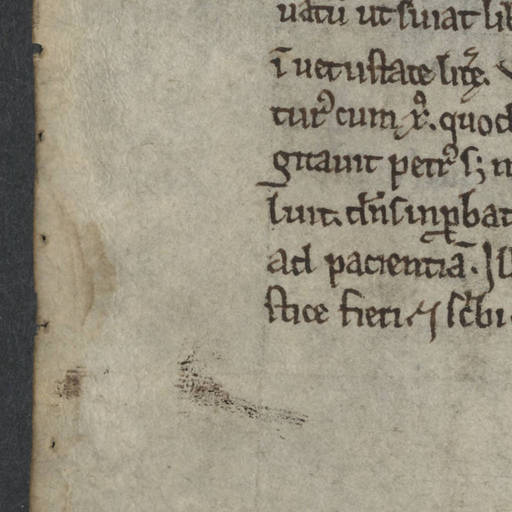 uatū ut suiat lib
ī uetustate litꝫ.
tur᾿ cum xp̄᾿. quod
gitauit petr᾿ s; n
luit. dn̄s inꝓbat
ad pacientiā. Il
stice fieri. ⁊ sc̄bi